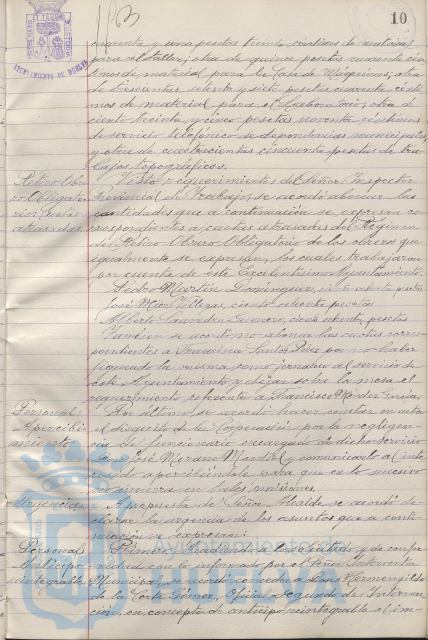 1163
10
cuarenta y una pesetas treinta céntimos de material
para el taller; otra de quince pesetas cuarenta cén-
timos de material para la Casa de Máquinas; otra
de trescientas setenta y siete pesetas cuarenta cénti-
mos de material para el Laboratorio; otra de
ciento treinta y cinco pesetas noventa céntimos
de servicio telefónico de dependencias municipales
y otra de cuatrocientas cincuenta pesetas de tra-
bajos topográficos.
Retiro Obre-
ro Obligato-
rio; cuotas
atrasadas.
Visto requerimientos del Señor Inspector
Provincial de Trabajo, se acordó abonar las
cantidades que a continuación se expresan co-
rrespondientes a cuotas atrasadas del Régimen
del Retiro Obrero Obligatorio de los obreros que
igualmente se expresan, los cuales trabajaron
por cuenta de este Excelentísimo Ayuntamiento.
Pedro Martín Domínguez, ciento ochenta pesetas
José ciento ochenta pesetas
Alberto Saavedra Guerrero, ciento ochenta pesetas
También se acordó no abonar las cuotas corres-
pondientes a Francisco Santos Pérez por no haber
figurado la misma como jornalero al servicio de
este Ayuntamiento y dejar sobre la mesa el
requerimiento referente a Francisco Méndez García.
Personal:
Apercibi-
miento
Por último se acordó hacer constar en acta
el disgusto de la Corporación por la negligen-
cia del funcionario encargado de dicho servicio
Don José Morano Montiel y comunicarlo al inte-
resado apercibiéndole para que en lo sucesivo
no incurra en tales omisiones.
Urgencias
A propuesta del Señor Alcalde se acordó de-
clarar la urgencia de los asuntos que a conti-
nuación se expresan:
Personal:
Anticipo
reintegrable
Primero: Accediendo a lo solicitado y de confor-
midad con lo informado por el Señor Interventor
Municipal, se acordó conceder a Don Hermenegildo
de la Corte Gómez, Oficial segundo de Interven-
ción, en concepto de anticipo reintegrable el im-